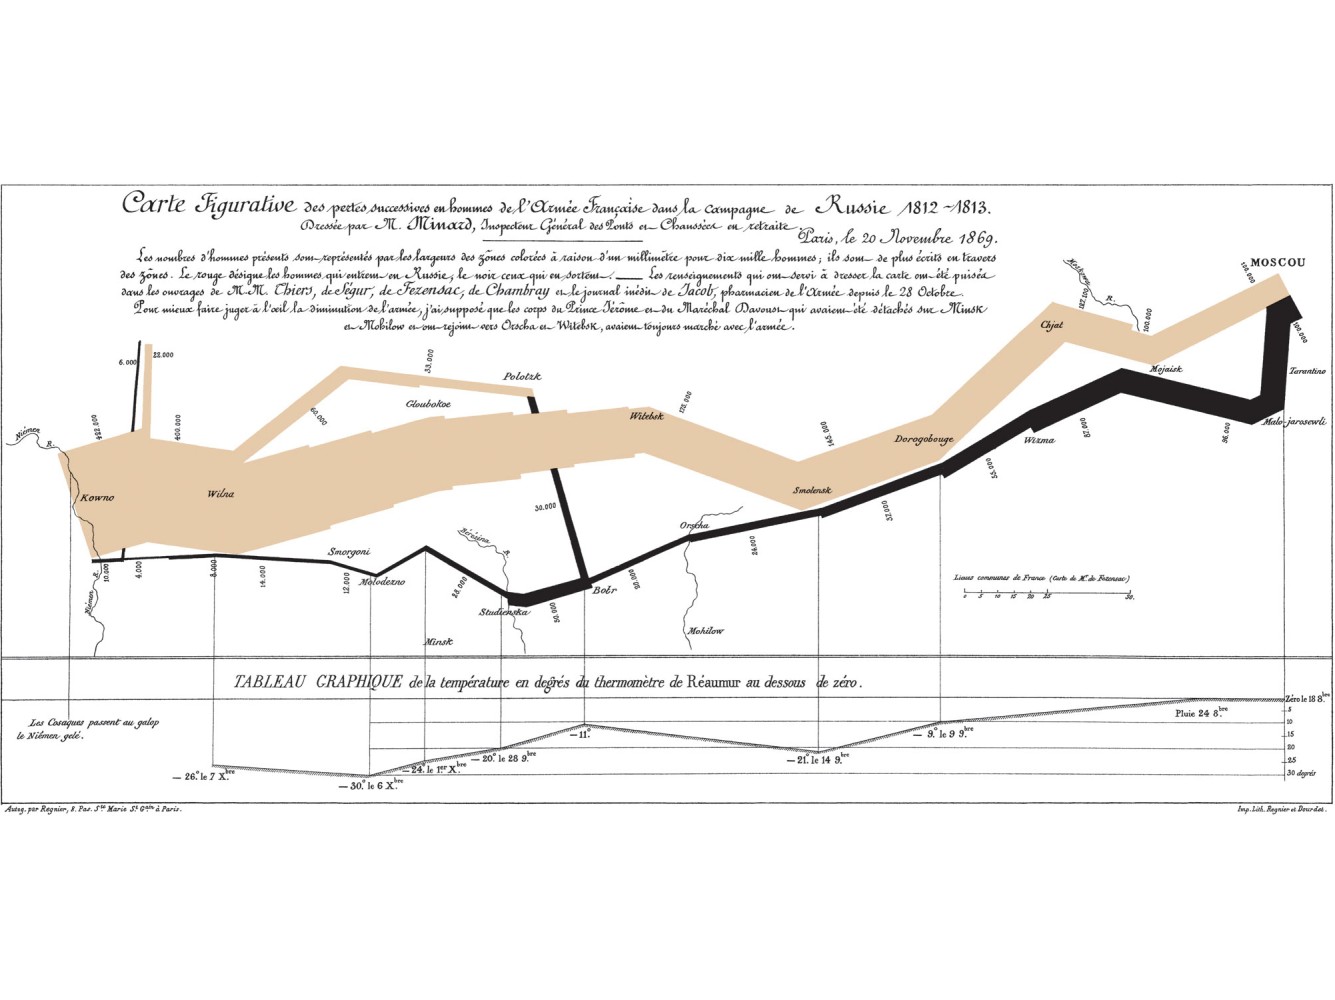 Carte Figurative des pertes successives en hommes de l'Armée Française dans la campagne de Russie 1812~1813.
Dressée par M. Minard, Inspecteur Général des Ponts et Chaussées en retraite.
Paris, le 20 Novembre 1869.
Les nombres d'hommes présents sont représentés par les largeurs des zônes colorées à raison d'un millimètre pour dix mille hommes; ils sont de plus écrits en travers
des zônes. Le rouge désigne les hommes qui entrent en Russie; le noir ceux qui en sortent. Les renseignements qui ont servi à dresser la carte ont été puisés
dans les ouvrages de M.M. Thiers, de Ségur, de Fezensac, de Chambray et le journal inédit de Jacob, pharmacien de l'Armée depuis le 28 Octobre.
Pour mieux faire juger à l'œil la diminution de l'armée, j'ai supposé que les corps du Prince Jérôme et du Maréchal Davoust qui avaient été détachés sur Minsk
et Mohilow et ont rejoint vers Orscha et Witebsk, avaient toujours marché avec l'armée.
MOSCOU
100.000
Moskowa R.
127.100
100.000
100.000
Chjat
Mojaisk
Tarantino
Malo-jarosewli
6.000
22.000
33.000
Polotzk
60.000
Gloubokoe
175.000
Witebsk
422.000
400.000
145.000
Dorogobouge
Wizma
87.000
96.000
55.000
37.000
Niémen R.
Kowno
Wilna
Smolensk
30.000
Orscha
24.000
20.000
Bérézina R.
Smorgoni
Molodezno
10.000
4.000
8.000
14.000
12.000
28.000
50.000
Studienska
Bobr
Niémen R.
Minsk
Mohilow
Lieues communes de France (Carte de M. de Fezensac)
0 5 10 15 20 25 50.
TABLEAU GRAPHIQUE de la température en degrés du thermomètre de Réaumur au dessous de zéro.
Les Cosaques passent au galop
le Niémen gelé.
Zéro le 18 8.bre
Pluie 24 8.bre
5
10
15
20
25
30 degrés
— 26.° le 7 X.bre
— 30.° le 6 X.bre
— 24.° le 1.er X.bre
— 20.° le 28 9.bre
— 11.°
— 21.° le 14 9.bre
— 9.° le 9 9.bre
Autog. par Regnier, 8. Pas. S.te Marie S.t G.ain à Paris.
Imp. Lith. Regnier et Dourdet.